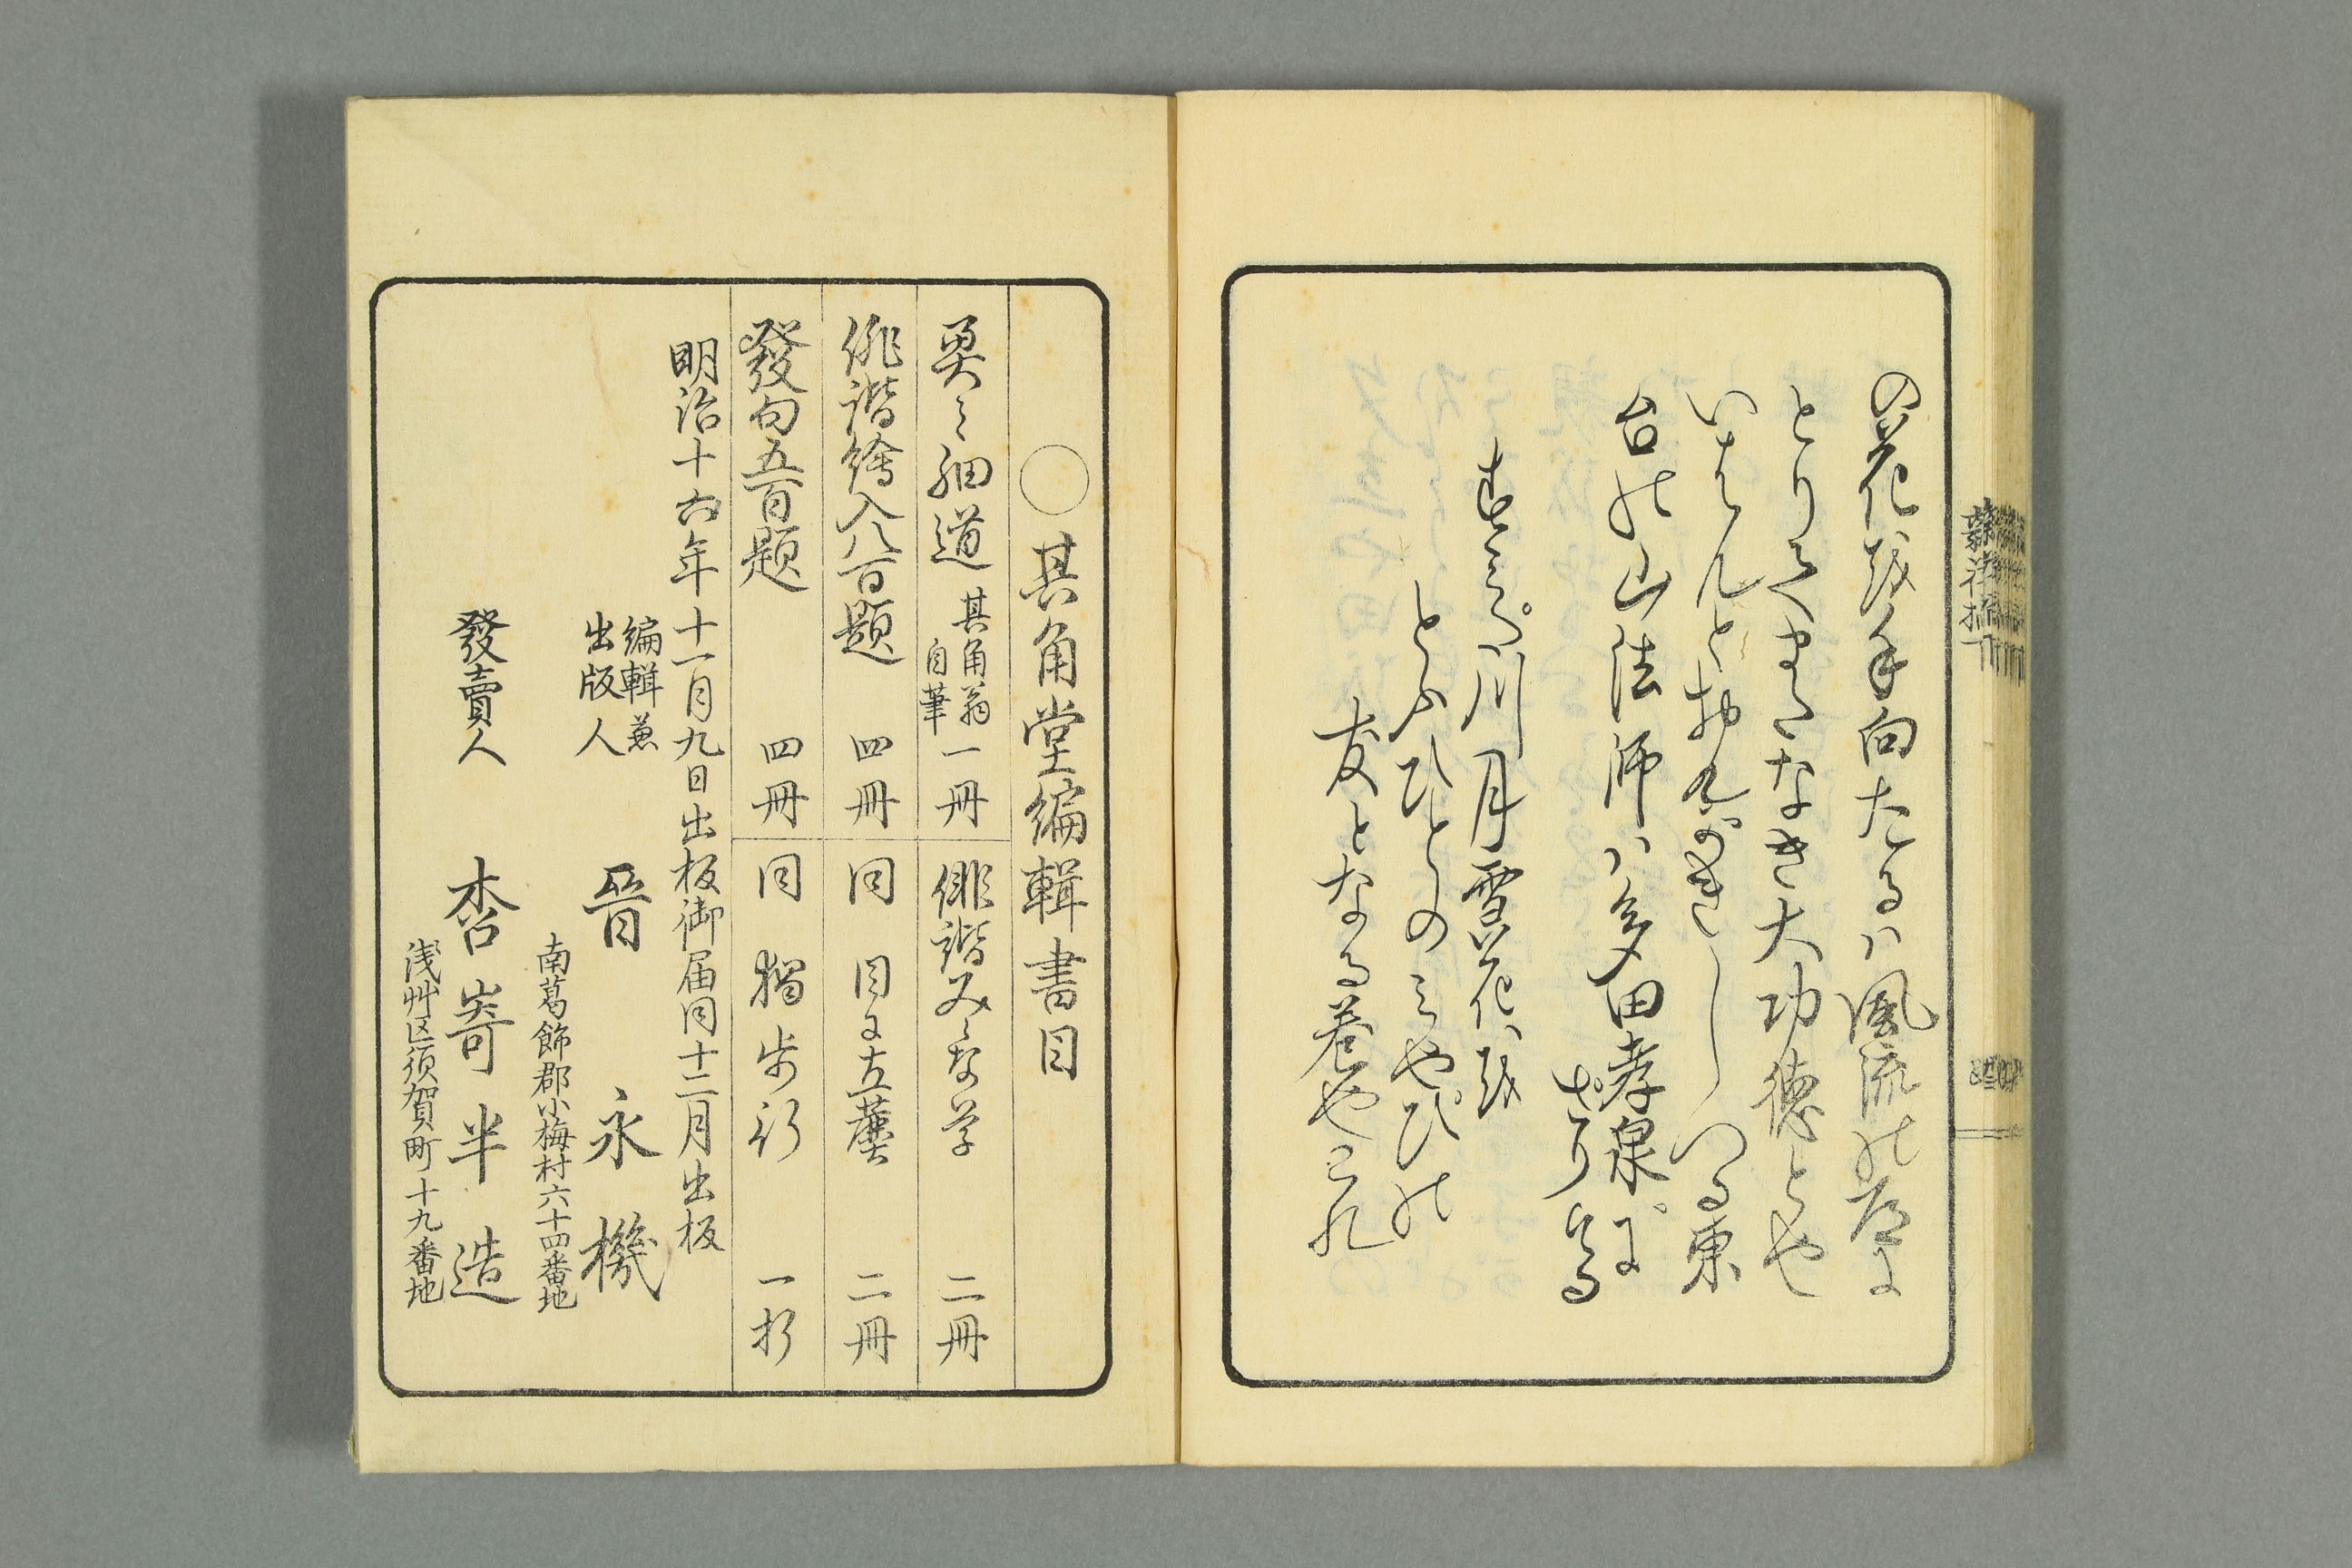 の花を手向たるハ風流の道に
とりてまたなき大功徳とや
いはんとおのがきしつる東
台の山法師ハ多田孝泉に
ざりける
すみだ川月雪花を
とふひとのみやびの
友となる巻やこれ
○其角堂編輯書目
奥之細道 其角翁自筆 一冊
俳諧みちな草 二冊
俳諧繪入八百題 四冊
同 目に古蘗 二冊
發句五百題 四冊
同 獨歩行 一折
明治十六年十一月九日出板御届同十二月出板
編輯兼出版人 晋永機
南葛飾郡小梅村六十四番地
發賣人 杏嵜半造
浅艸区須賀町十九番地